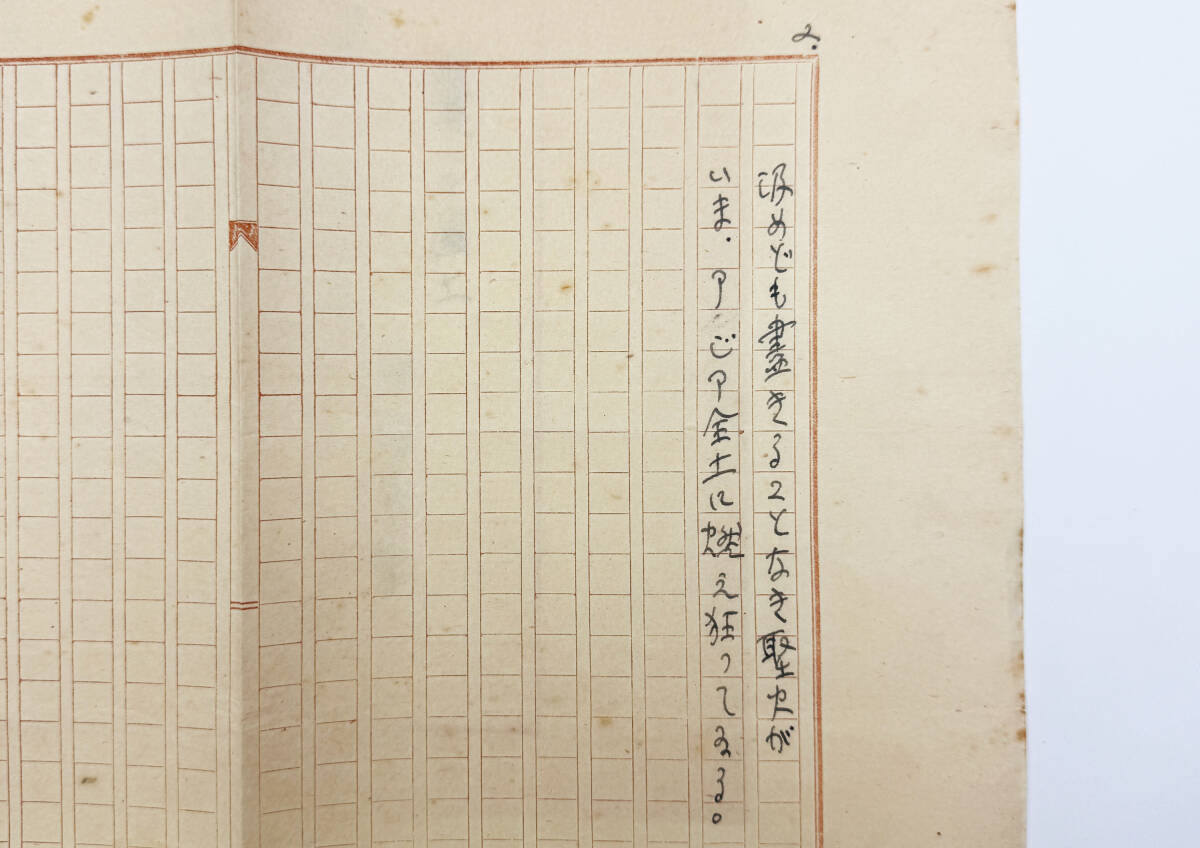 2.
汲めども盡きることなき聖火が
いま．アジア全土に燃え狂ってゐる。